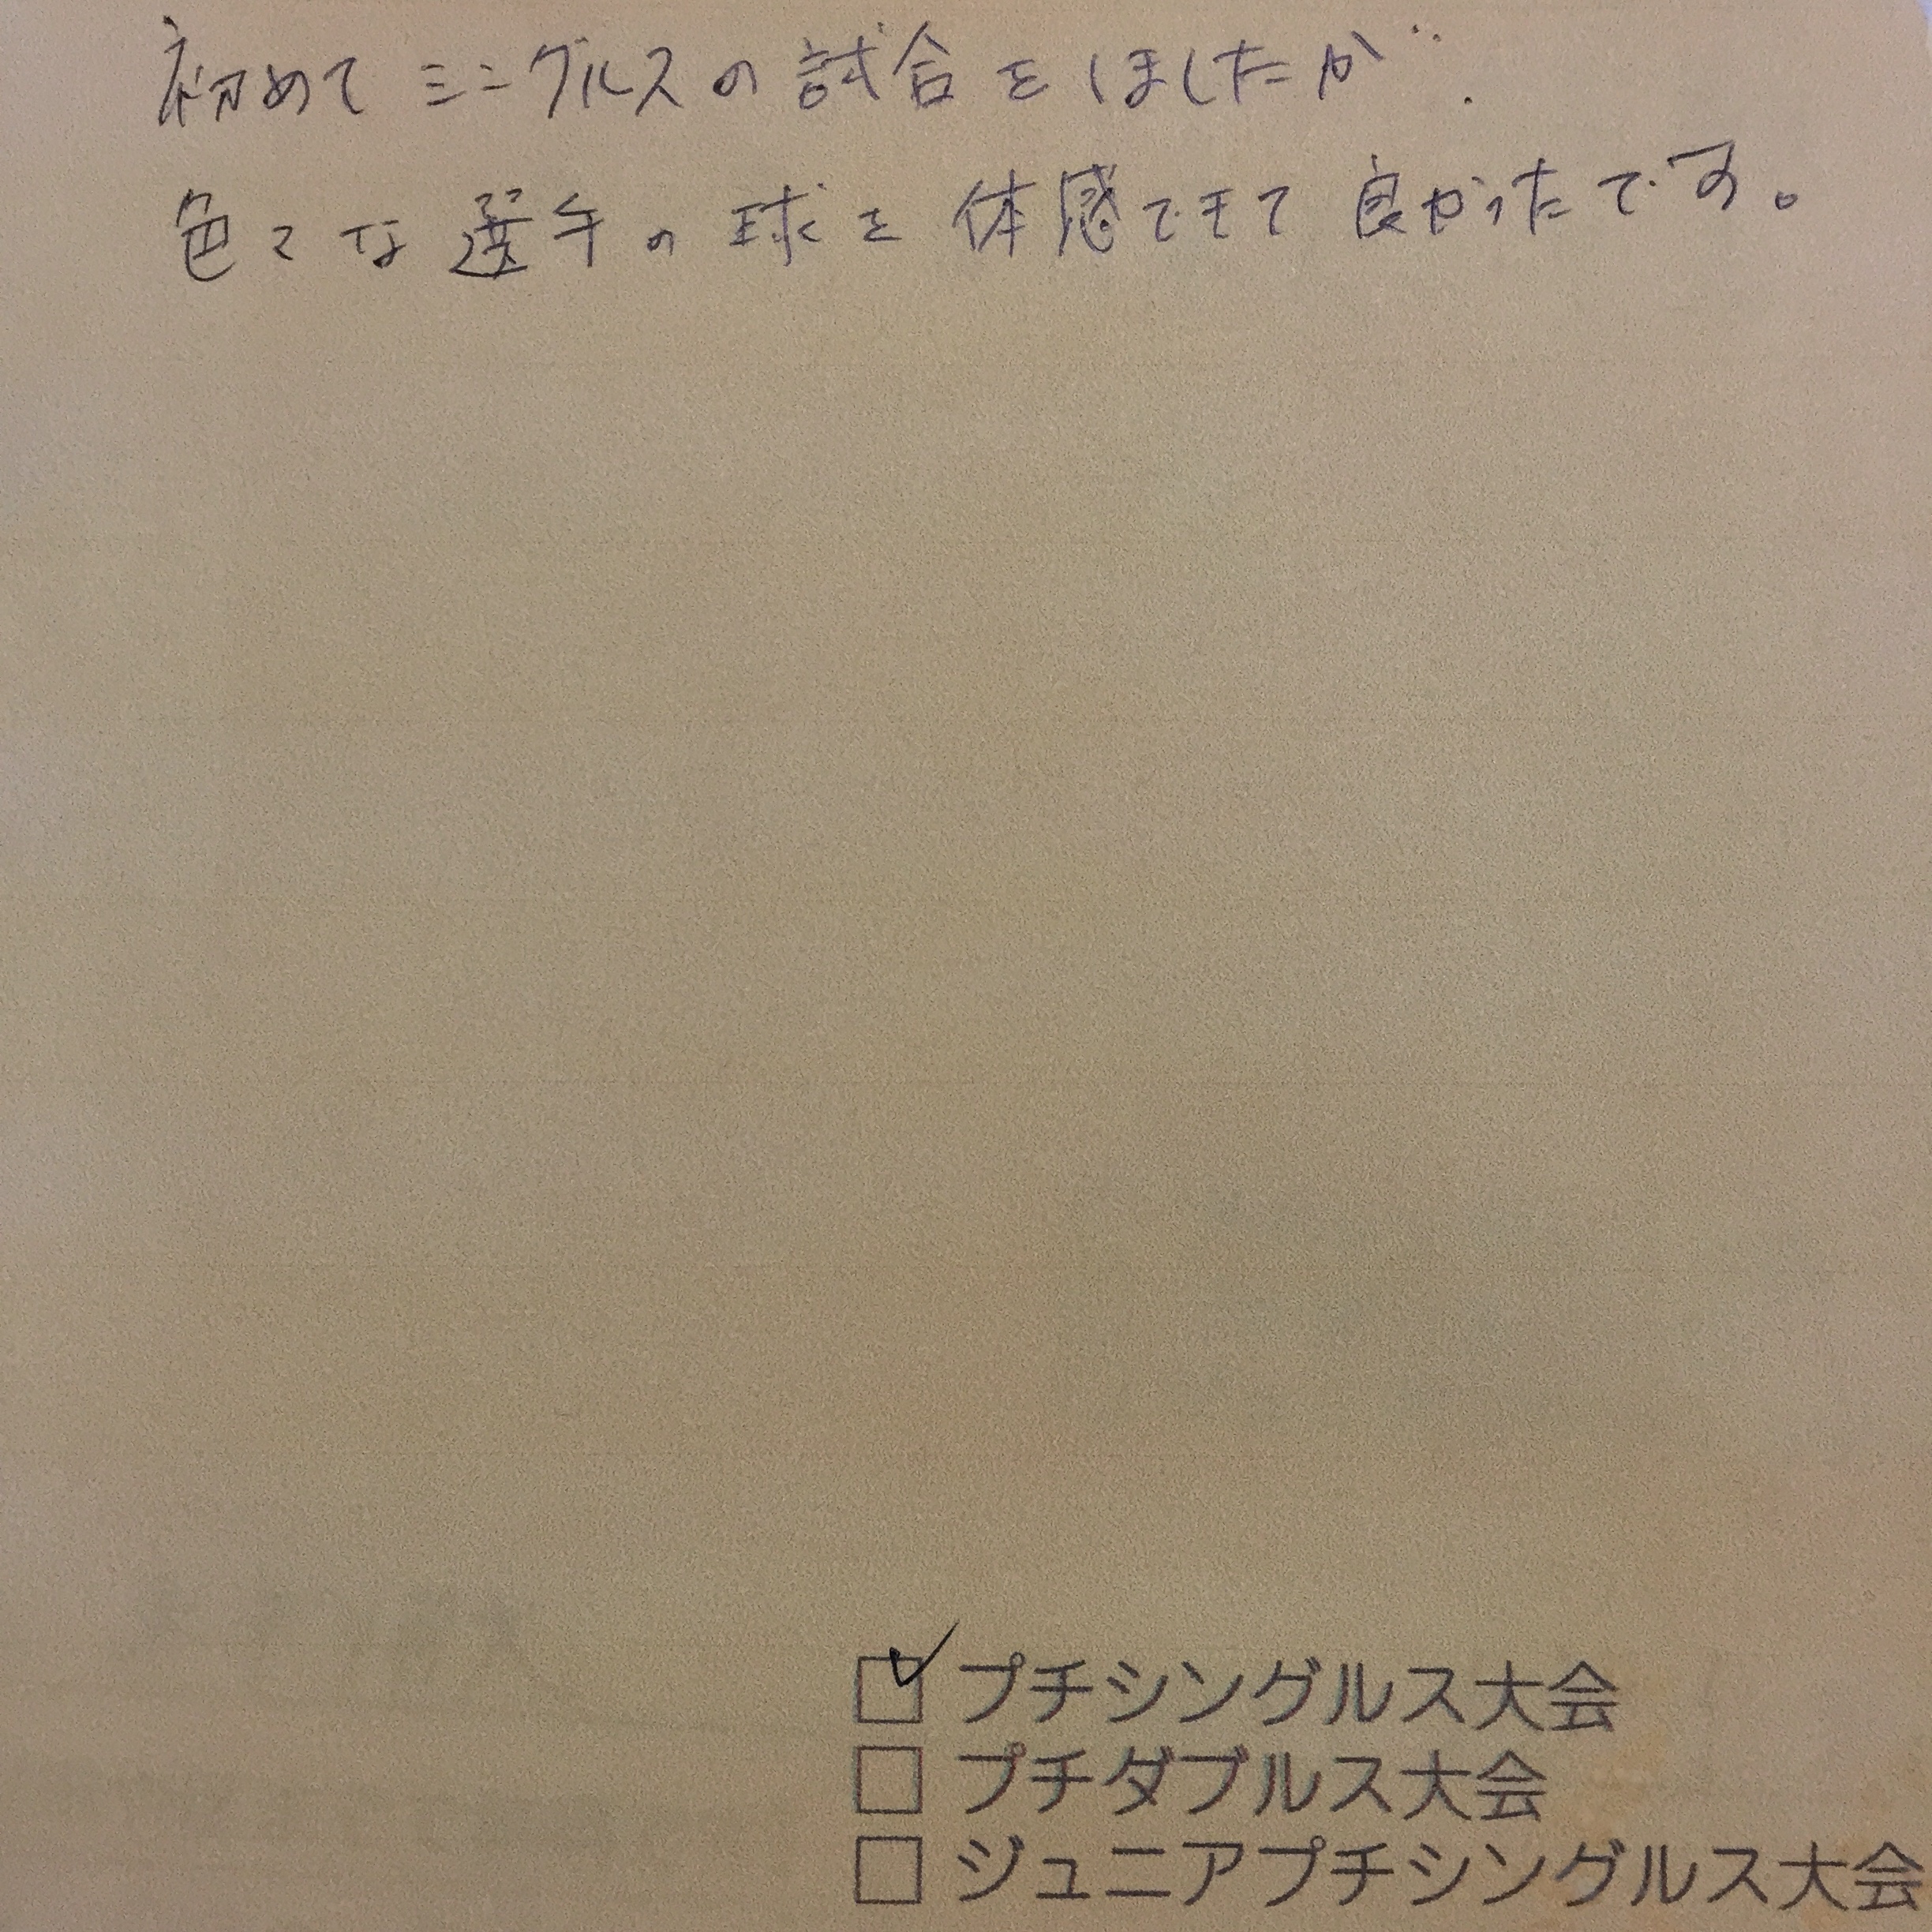 初めてシングルスの試合をしましたが、
色々な選手の球を体感できて良かったです。
☑ プチシングルス大会
□ プチダブルス大会
□ ジュニアプチシングルス大会